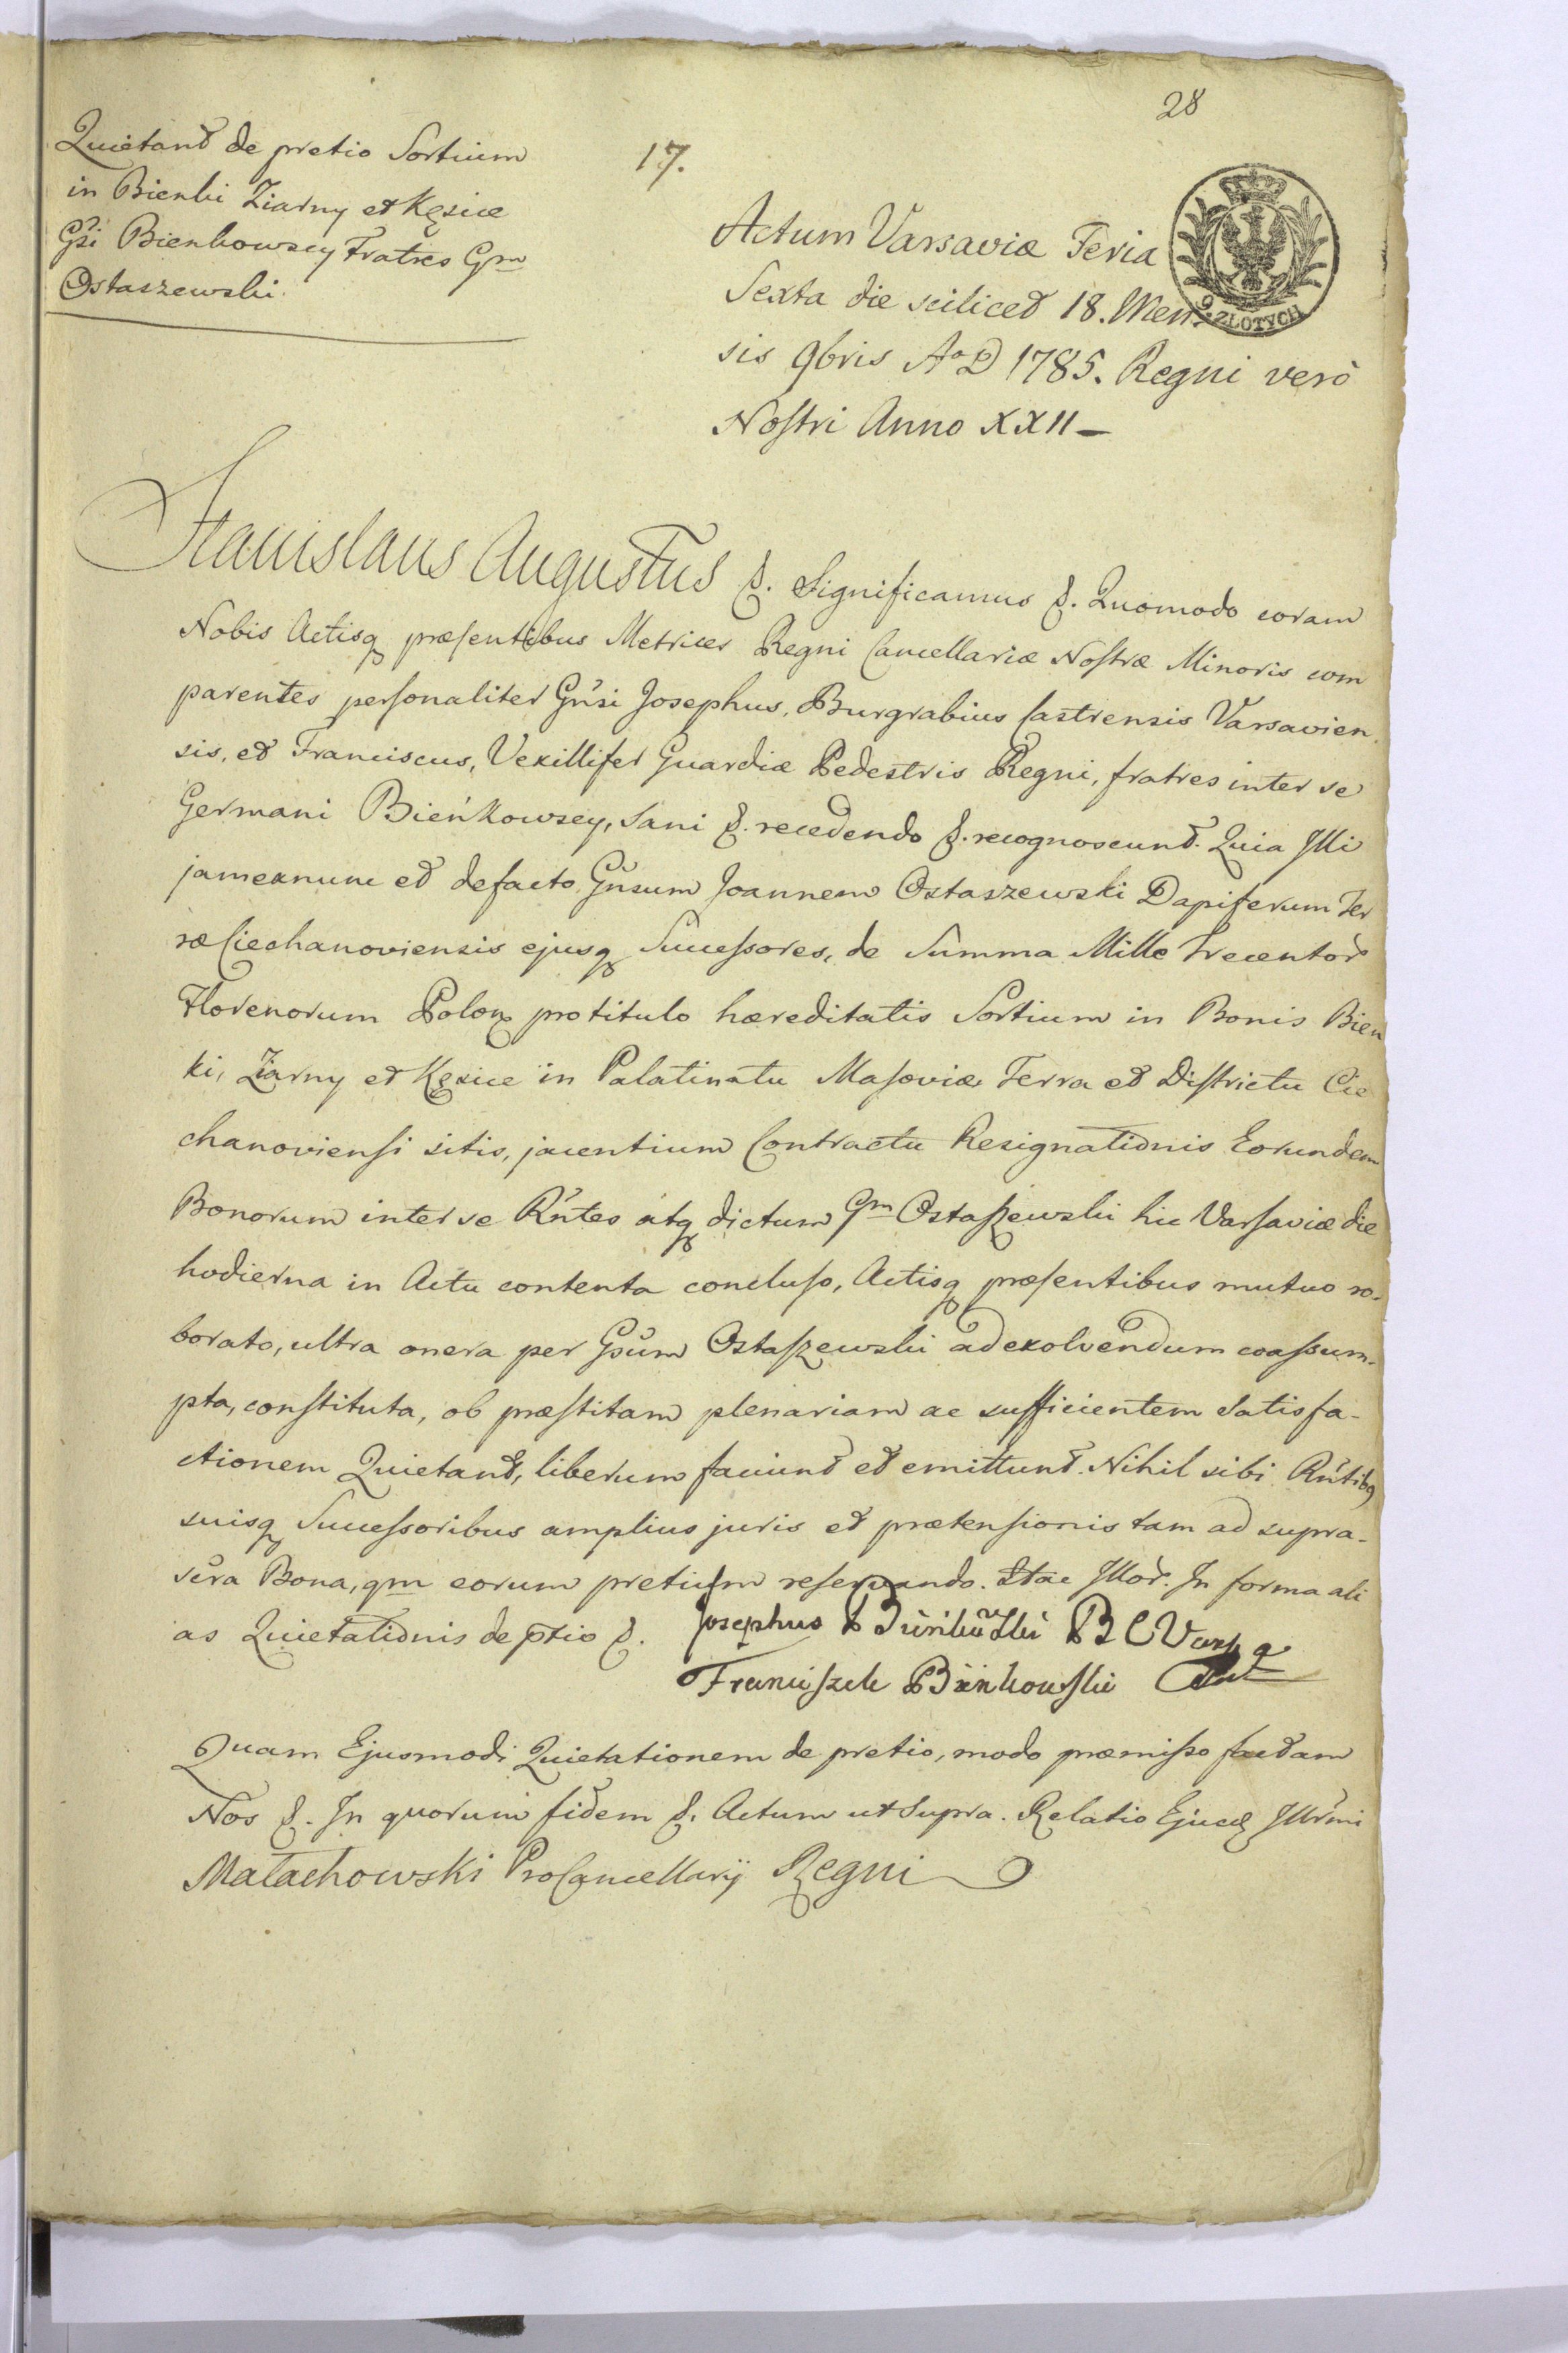 28
Quietant de pretio Sortium
in Bienki Ziarny et Kęsice
Gsi Bienkowscy Fratres Gm
Ostaszewski.
17.
Actum Varsaviæ Feria
Sexta die scilicet 18. Men-
sis 9bris Ao D 1785. Regni verò
Nostri Anno XXII
9. ZŁOTYCH
Stanislaus Augustus &. Significamus &. Quomodo coram
Nobis Actisq præsentibus Metrices Regni Cancellariæ Nostræ Minoris com
parentes personaliter Gnsi Josephus, Burgrabius Castrensis Varsavien
sis, et Franciscus, Vexillifer Guardiæ Pedestris Regni, fratres inter se
Germani Bieńkowscy, Sani &. recedendo &. recognoscunt. Quia Illi
jamexnunc et defacto Gnsum Joannem Ostaszewski Dapiferum Ter
ræ Ciechanoviensis ejusq Successores, de Summa Mille Trecentor
Florenorum Polon protitulo hæreditatis Sortium in Bonis Bien
ki, Ziarny et Kęsice in Palatinatu Masoviæ Terra et Districtu Cie
chanoviensi sitis, jacentium Contractu Resignationis Eorundem
Bonorum inter se Rntes atq dictum Gm Ostaszewski hic Varsaviæ die
hodierna in Actu contenta concluso, Actisq præsentibus mutuo ro-
borato, ultra onera per Gsum Ostaszewski adexolvendum coassum-
pta, constituta, ob præstitam plenariam ac sufficientem Satisfa-
ctionem Quietant, liberum faciunt et emittunt. Nihil sibi Rntibq
suisq Successoribus amplius juris et prætensionis tam ad supra-
scra Bona, qm eorum pretium reservando. Itae Illor. In forma ali
as Quietationis de ptio &. Josephus Bieńkowski B C Vars
Franciszek Bieńkowski
Quam Ejusmodi Quietationem de pretio, modo præmisso factam
Nos &. In quorum fidem &. Actum ut Supra. Relatio Ejusd Illrmi
Małachowski ProCancellarij Regni